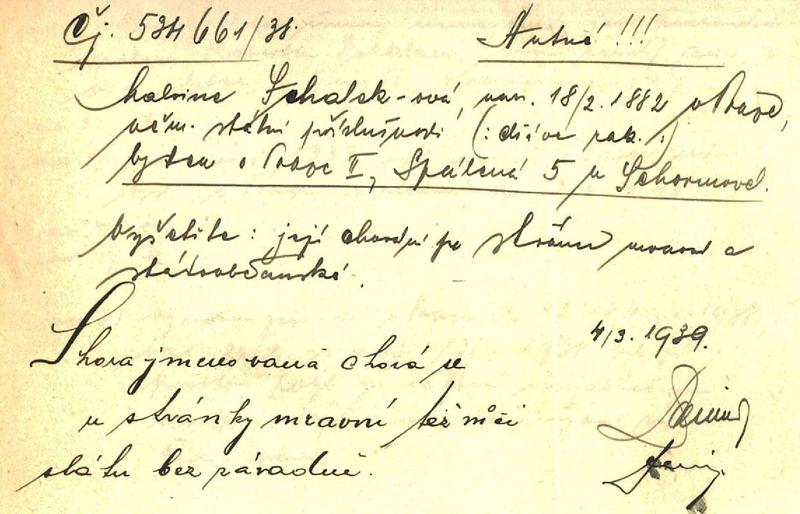 Čj. 534661/38. Nutné!!!
Malvine Schalek-ová, nar. 18/2. 1882 v Praze,
něm. státní příslušnosti (: dříve rak. :)
bytem v Praze II, Spálená 5 u Schormové.
Vyšetřte: její chování po stránce mravní a
státoobčanské.
Shora jmenovaná chová se
u stránky mravní též vůči
státu bez závadně.
4/3. 1939.